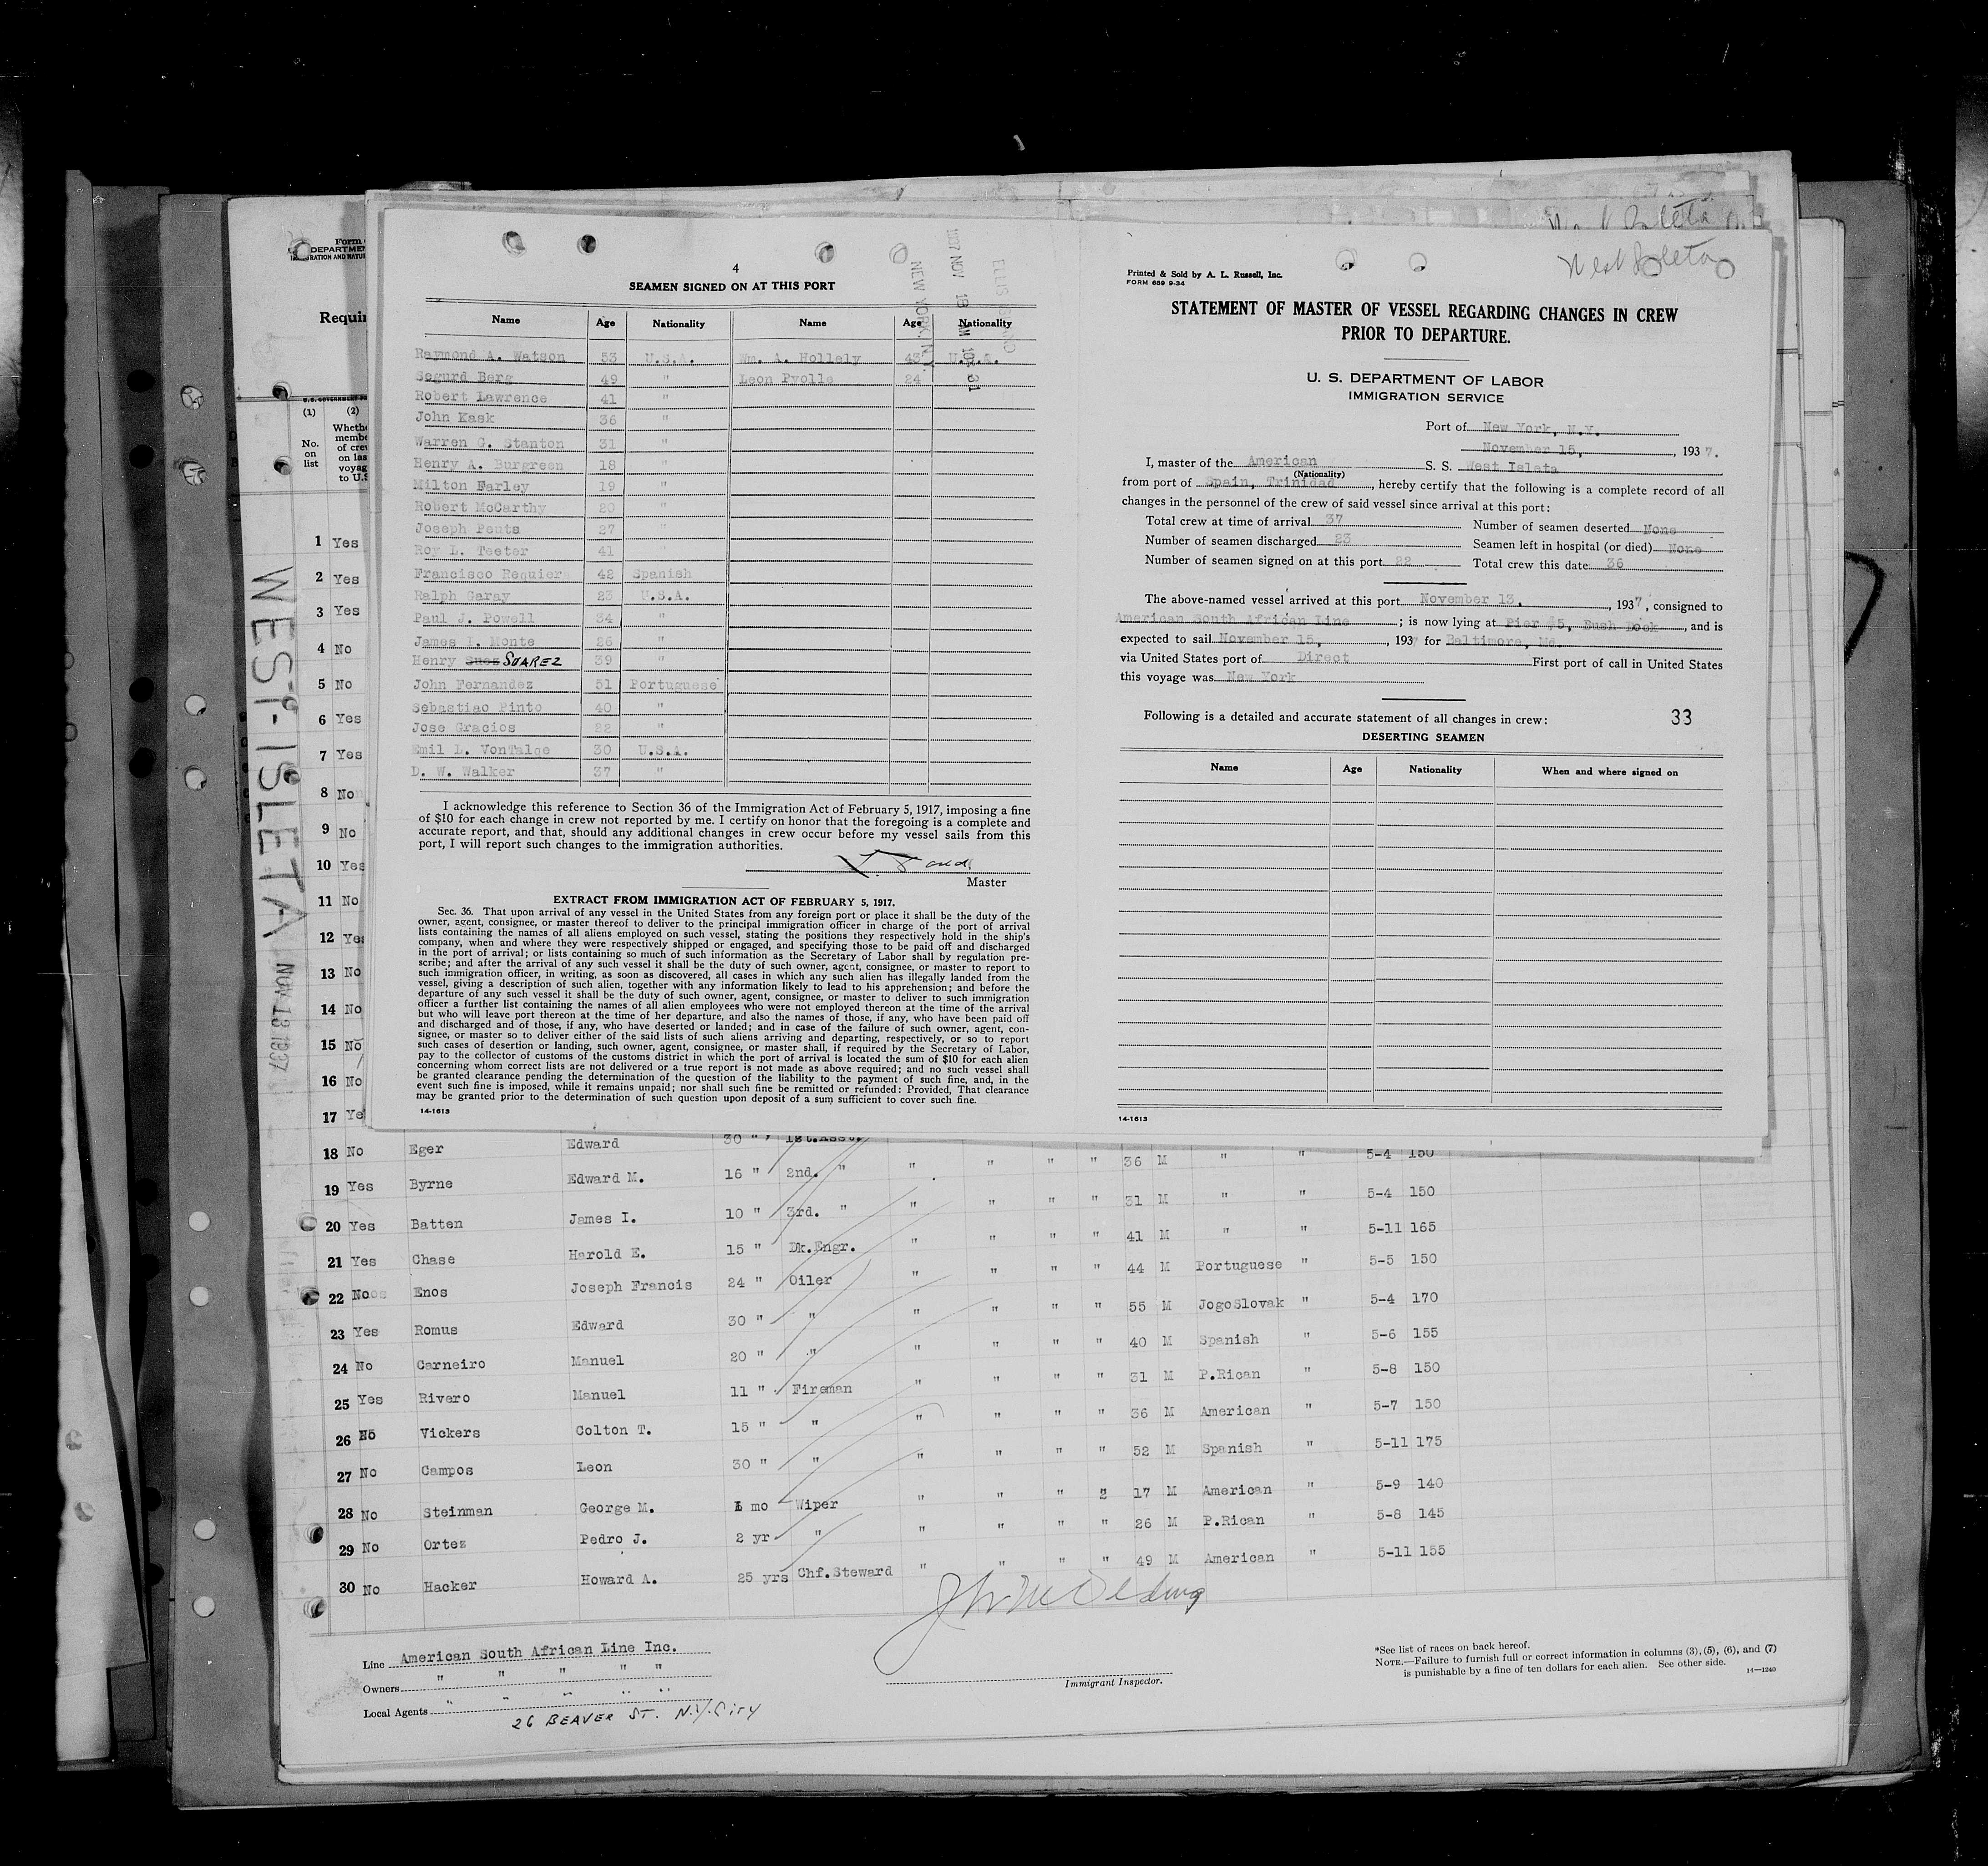 Form
DEPARTME
RATION AND NATU
Requir
(1) (2)
No. on list
Wheth
membe
of cre
on las
voyag
to U.S
1 Yes
2 Yes
3 Yes
4 No
5 No
6 Yes
7 Yes
8 No
9 No
10 Yes
11 No
12 Yes
13 No
14 No
15 No
16 No
17 Ye
WEST-ISLETA NOV 13 1937
4
SEAMEN SIGNED ON AT THIS PORT
ELLIS ISLAND
1937 NOV 18 AM 10: 31
NEW YORK, N.Y.
Name Age Nationality Name Age Nationality
Raymond A. Watson 53 U.S.A. Wm. A. Hollely 43 U.S.A.
Segurd Berg 49 " Leon Pyolle 24
Robert Lawrence 41 "
John Kask 36 "
Warren G. Stanton 31 "
Henry A. Burgreen 18 "
Milton Farley 19 "
Robert McCarthy 20 "
Joseph Pouts 27 "
Roy L. Teeter 41 "
Francisco Requier 42 Spanish
Ralph Garay 23 U.S.A.
Paul J. Powell 34 "
James I. Monte 26 "
Henry SUAREZ 39 "
John Fernandez 51 Portuguese
Sebastiao Pinto 40 "
Jose Gracios 22 "
Emil L. VonTalge 30 U.S.A.
D. W. Walker 37 "
I acknowledge this reference to Section 36 of the Immigration Act of February 5, 1917, imposing a fine
of $10 for each change in crew not reported by me. I certify on honor that the foregoing is a complete and
accurate report, and that, should any additional changes in crew occur before my vessel sails from this
port, I will report such changes to the immigration authorities.
Master
EXTRACT FROM IMMIGRATION ACT OF FEBRUARY 5, 1917.
Sec. 36. That upon arrival of any vessel in the United States from any foreign port or place it shall be the duty of the
owner, agent, consignee, or master thereof to deliver to the principal immigration officer in charge of the port of arrival
lists containing the names of all aliens employed on such vessel, stating the positions they respectively hold in the ship's
company, when and where they were respectively shipped or engaged, and specifying those to be paid off and discharged
in the port of arrival; or lists containing so much of such information as the Secretary of Labor shall by regulation pre-
scribe; and after the arrival of any such vessel it shall be the duty of such owner, agent, consignee, or master to report to
such immigration officer, in writing, as soon as discovered, all cases in which any such alien has illegally landed from the
vessel, giving a description of such alien, together with any information likely to lead to his apprehension; and before the
departure of any such vessel it shall be the duty of such owner, agent, consignee, or master to deliver to such immigration
officer a further list containing the names of all alien employees who were not employed thereon at the time of the arrival
but who will leave port thereon at the time of her departure, and also the names of those, if any, who have been paid off
and discharged and of those, if any, who have deserted or landed; and in case of the failure of such owner, agent, con-
signee, or master so to deliver either of the said lists of such aliens arriving and departing, respectively, or so to report
such cases of desertion or landing, such owner, agent, consignee, or master shall, if required by the Secretary of Labor,
pay to the collector of customs of the customs district in which the port of arrival is located the sum of $10 for each alien
concerning whom correct lists are not delivered or a true report is not made as above required; and no such vessel shall
be granted clearance pending the determination of the question of the liability to the payment of such fine, and, in the
event such fine is imposed, while it remains unpaid; nor shall such fine be remitted or refunded: Provided, That clearance
may be granted prior to the determination of such question upon deposit of a sum sufficient to cover such fine.
14-1613
West Isleta
West Isleta
Printed & Sold by A. L. Russell, Inc.
FORM 689 9-34
STATEMENT OF MASTER OF VESSEL REGARDING CHANGES IN CREW
PRIOR TO DEPARTURE.
U. S. DEPARTMENT OF LABOR
IMMIGRATION SERVICE
Port of New York, N.Y.
November 15, , 1937.
I, master of the American S. S. West Isleta
(Nationality)
from port of Spain, Trinidad , hereby certify that the following is a complete record of all
changes in the personnel of the crew of said vessel since arrival at this port:
Total crew at time of arrival 37 Number of seamen deserted None
Number of seamen discharged 23 Seamen left in hospital (or died) None
Number of seamen signed on at this port 22 Total crew this date 36
The above-named vessel arrived at this port November 13, , 1937, consigned to
American South African Line ; is now lying at Pier #5, Bush Dock , and is
expected to sail November 15, , 1937 for Baltimore, Md.
via United States port of Direct First port of call in United States
this voyage was New York
Following is a detailed and accurate statement of all changes in crew: 33
DESERTING SEAMEN
Name Age Nationality When and where signed on
14-1613
18 No Eger Edward 30 " 1st.Asst. 36 M " " 5-4 150
19 Yes Byrne Edward M. 16 " 2nd. " " " " " 31 M " " 5-4 150
20 Yes Batten James I. 10 " 3rd. " " " " " 41 M " " 5-11 165
21 Yes Chase Harold E. 15 " Dk.Engr. " " " " 44 M Portuguese " 5-5 150
22 No Enos Joseph Francis 24 " Oiler " " " " 55 M JogoSlovak " 5-4 170
23 Yes Romus Edward 30 " " " " " " 40 M Spanish " 5-6 155
24 No Carneiro Manuel 20 " " " " " " 31 M P.Rican " 5-8 150
25 Yes Rivero Manuel 11 " Fireman " " " " 36 M American " 5-7 150
26 No Vickers Colton T. 15 " " " " " " 52 M Spanish " 5-11 175
27 No Campos Leon 30 " " " " " " 17 M American " 5-9 140
28 No Steinman George M. 1 mo Wiper " " " " 26 M P.Rican " 5-8 145
29 No Ortez Pedro J. 2 yr " " " " " 49 M American " 5-11 155
30 No Hacker Howard A. 25 yrs Chf.Steward " " " "
Line American South African Line Inc.
Owners " " " " "
Local Agents " " " " "
26 BEAVER ST. N.Y. City
Immigrant Inspector.
*See list of races on back hereof.
NOTE.—Failure to furnish full or correct information in columns (3), (5), (6), and (7)
is punishable by a fine of ten dollars for each alien. See other side. 14—1240